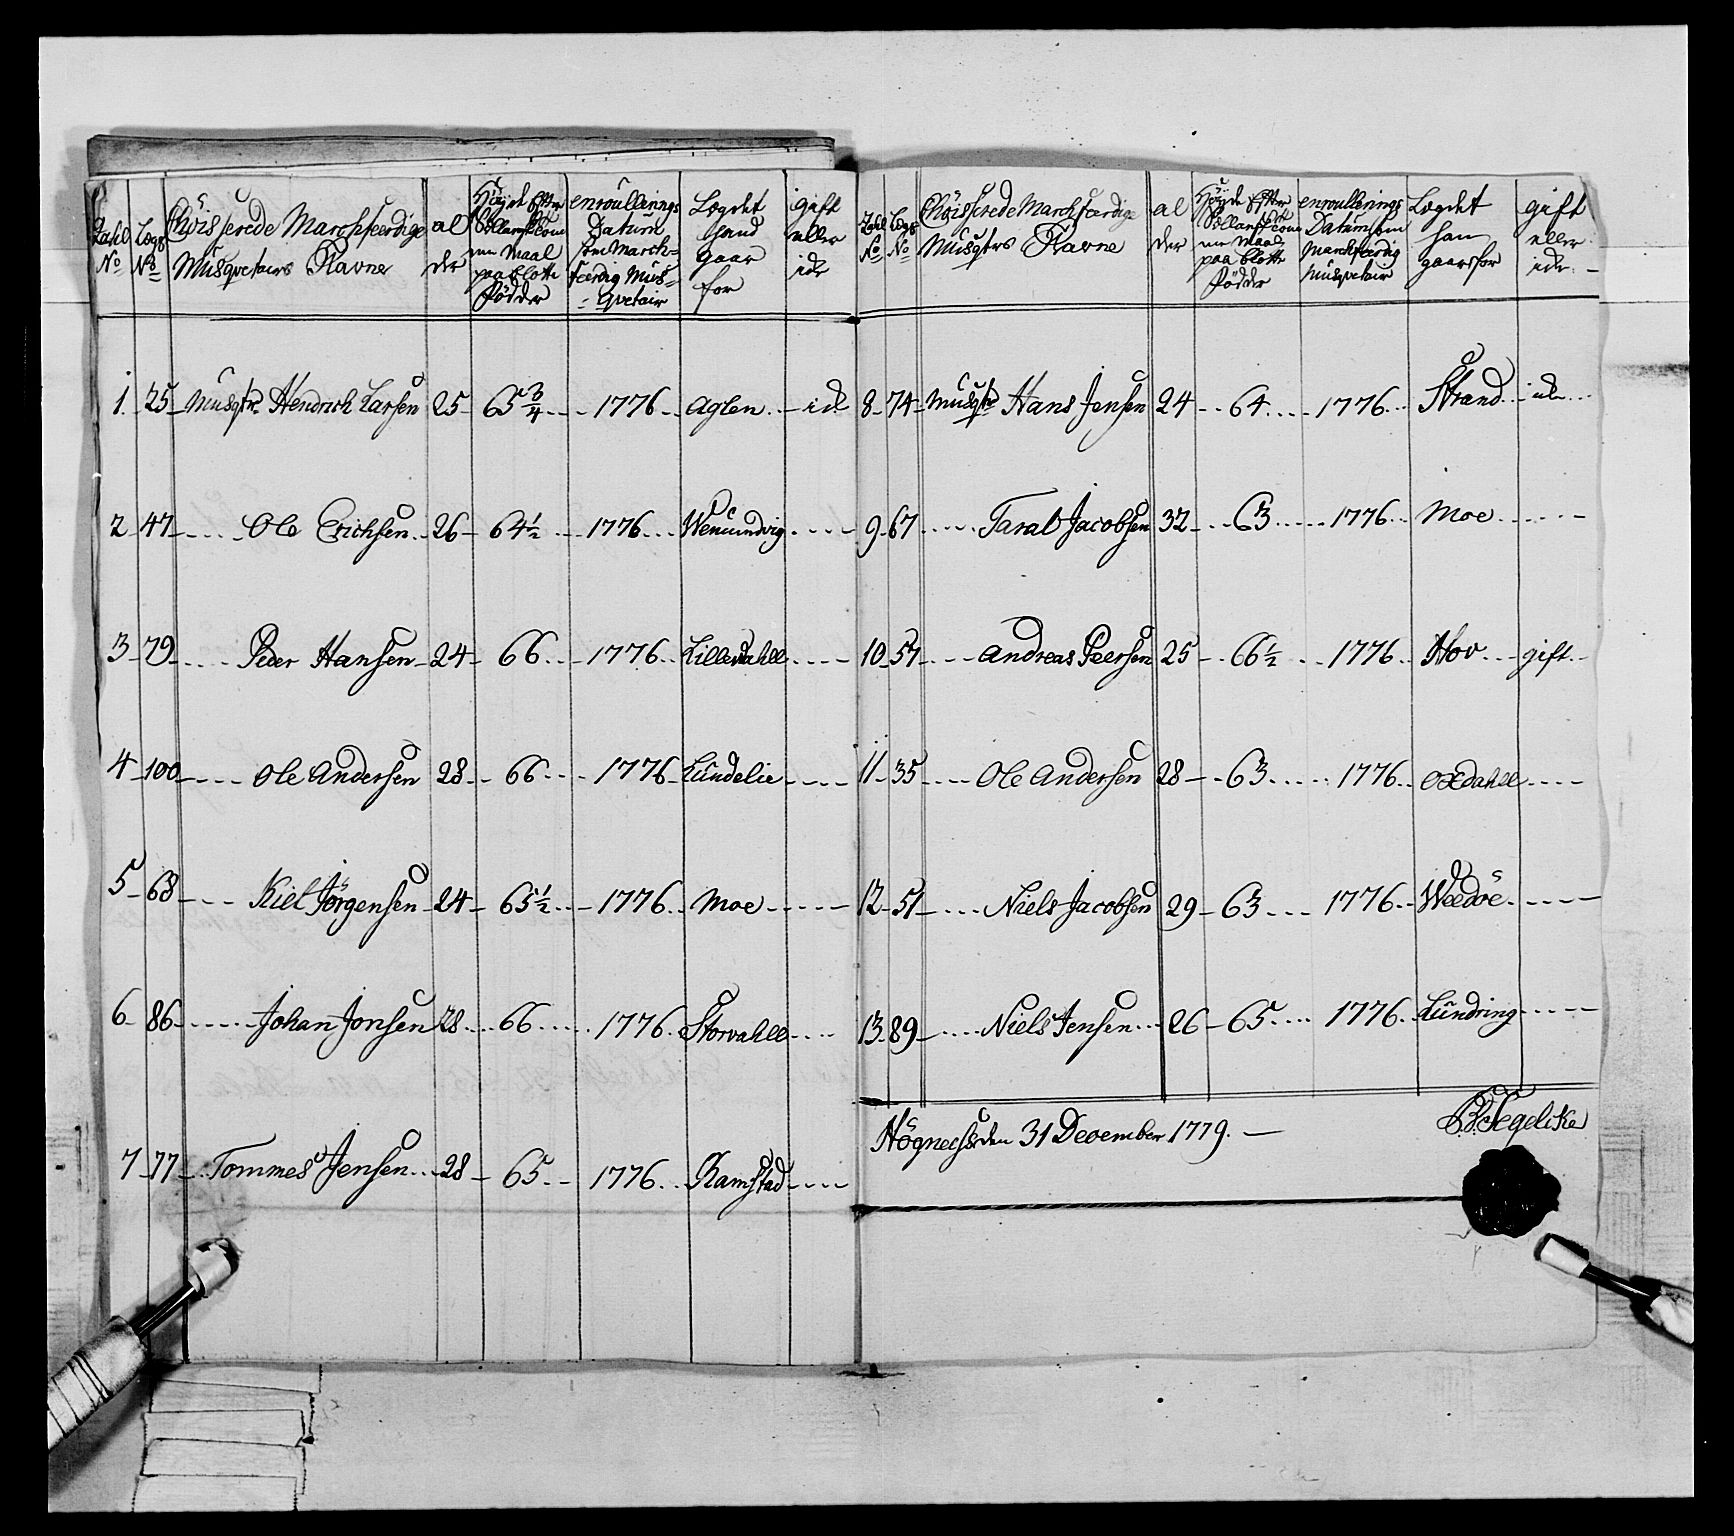 Zahl No | Legs No | Choisserede Marchfærdige Musqvetairs Navne | al der | Höjde Efter Sollanske tom me Maal paa blotte Födder | enroullerings Datum som March- færdig Mus- qvetair | Lægdet hand gaar for | gift eller ide
1 25 Musqtr Hendrich Larsen 25 65 3/4 1776 Aglen ide
2 47 Ole Erichsen 26 64 1/2 1776 Wemundvig
3 79 Peder Hansen 24 66 1776 Lilledahll
4 100 Ole Andersen 28 66 1776 Lundelie
5 68 Kiel Jörgensen 24 65 1/2 1776 Moe
6 86 Johan Jonsen 28 66 1776 Storvahll
7 77 Tommes Jensen 28 65 1776 Ramstad
Zahl No | Legs No | Choisserede Marchfærdige Musqtrs Navne | al der | Höyde Efter Sollanske tom me Maal paa blotte Födder | enroullerings Datum som Marchfærdig Musqvetair | Lægdet han gaar for | gift eller ide
8 74 Musqtr Hans Jensen 24 64 1776 Strand ide
9 67 Taral Jacobsen 32 63 1776 Moe
10 57 Andreas Peersen 25 66 1/2 1776 Hov gift
11 35 Ole Andersen 28 63 1776 Oxdahll
12 51 Niels Jacobsen 29 63 1776 Weedöe
13 89 Niels Jensen 26 65 1776 Lundring
den 31 December 1779.